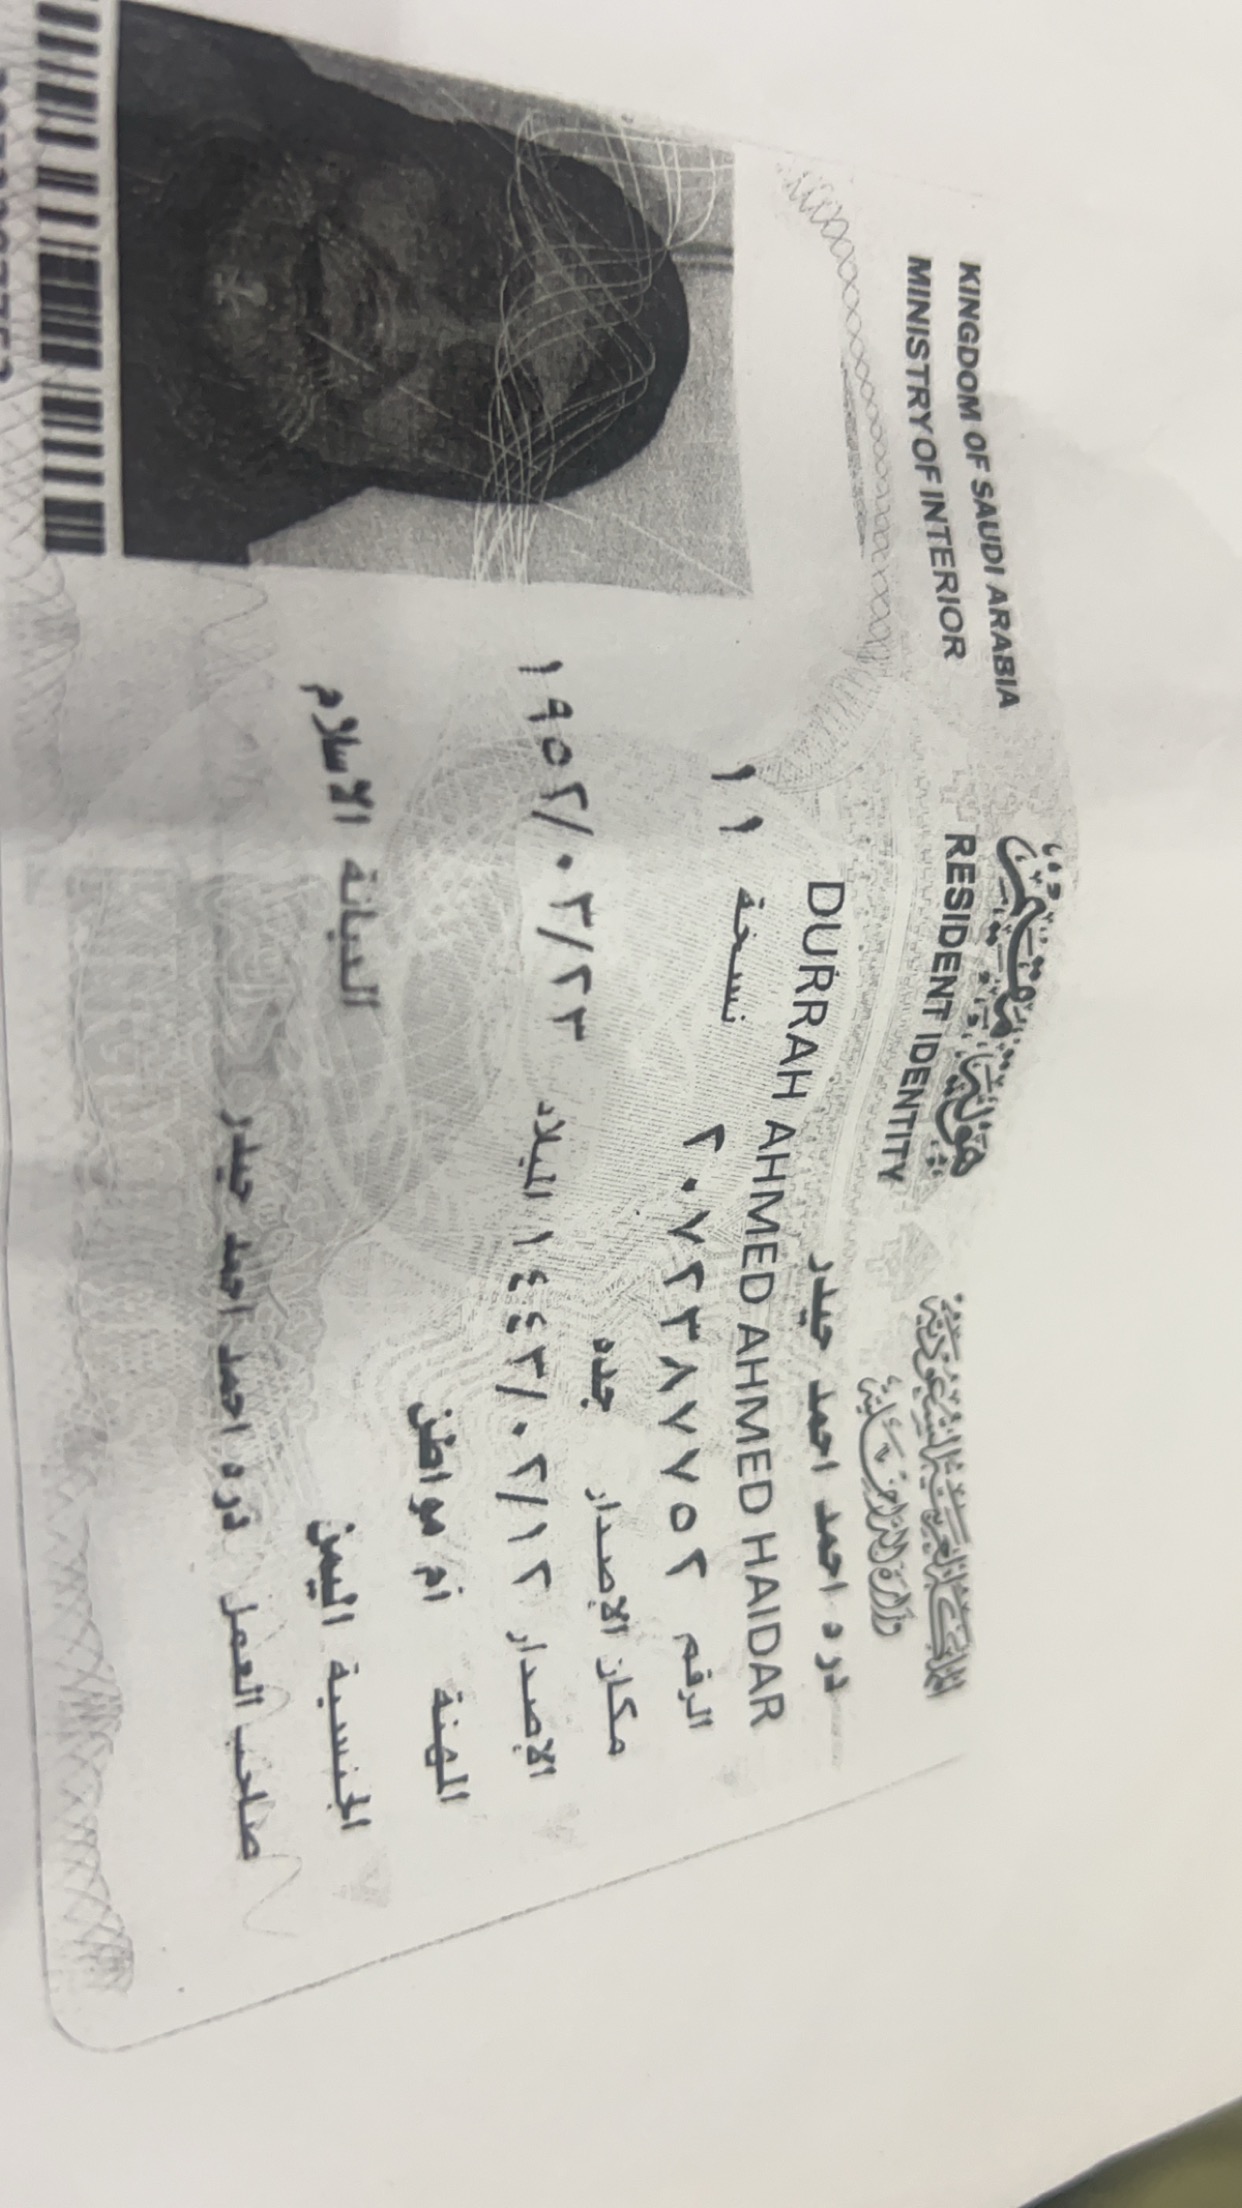 KINGDOM OF SAUDI ARABIA
MINISTRY OF INTERIOR
هوية مقيم
RESIDENT IDENTITY
المملكة العربية السعودية
وزارة الداخلية
دره احمد احمد حيدر
DURRAH AHMED AHMED HAIDAR
الرقم ٢٠٧٢٣٨٧٧٥٢ نسخة ١١
مكان الإصدار جده
الإصدار ١٤٤٣/٠٢/١٢ الميلاد ١٩٥٢/٠٣/٢٣
المهنة ام مواطن
الجنسية اليمن الديانة الاسلام
صاحب العمل دره احمد احمد حيدر